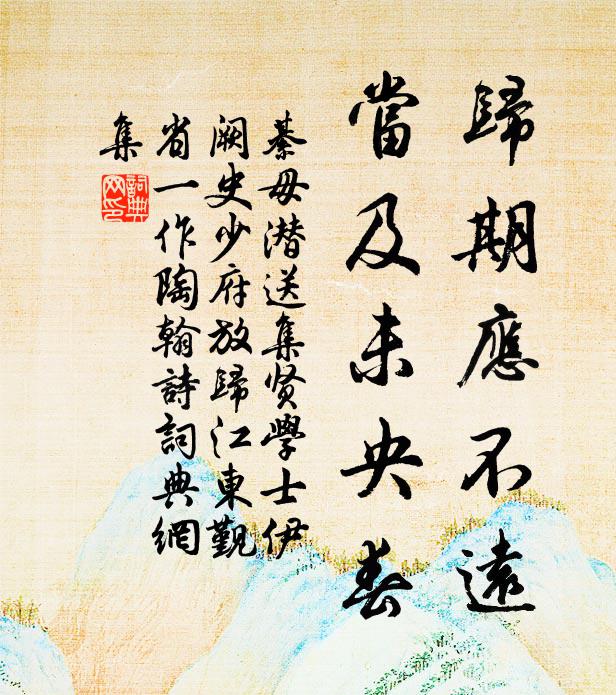 歸期應不遠
當及未央春
綦毋潜送集贤學士伊
阙史少府放歸江東觐
省一作陶翰詩詞典網
集
詞典網印